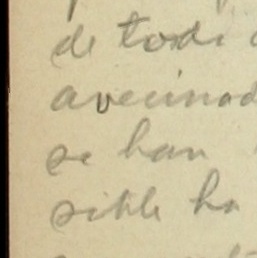 de todo
avecinad
se han
sible ha